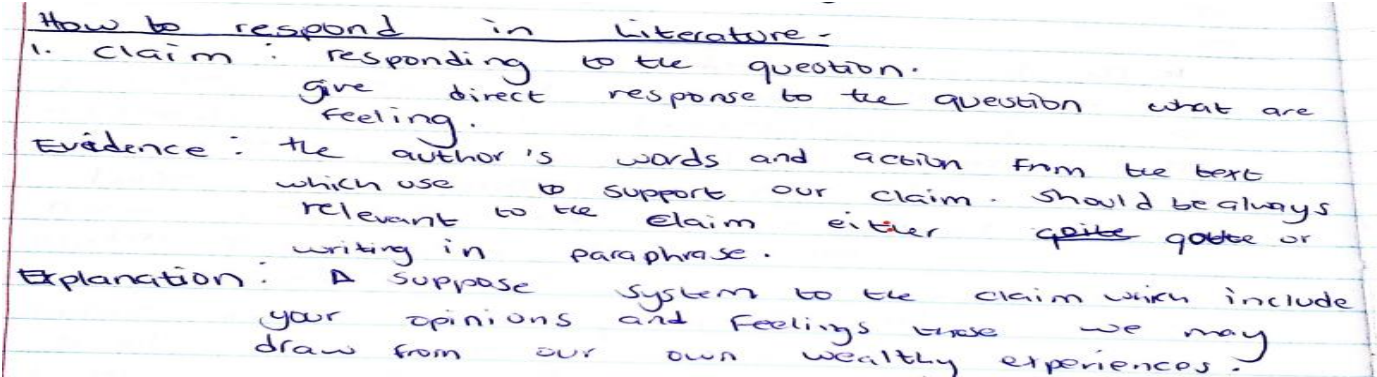 How to respond in Literature -
1. claim : responding to the question.
give direct response to the question what are
feeling.
Evidence : the author's words and action from the text
which use to support our claim. Should be always
relevant to the claim either quite qoute or
writing in paraphrase.
Explanation : A suppose system to the claim which include
your opinions and feelings these we may
draw from our own wealthy experiences.